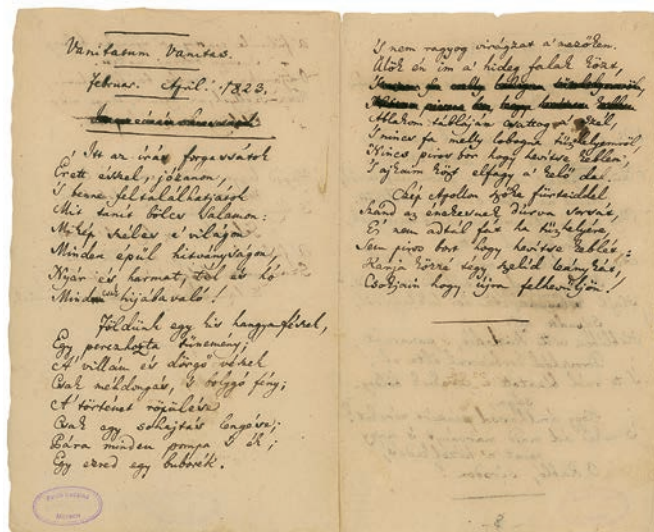 Vanitatum Vanitas.
Februar. April. 1823.
Itt az írás forgassátok
Érett ésszel, józanon,
'S benne feltalálhatjátok
Mit tanít bölcs Salamon:
Mikép széles e' világon
Minden épül hitványságon,
Nyár és harmat, tél és hó
Mind csak híjába való!
Földünk egy kis hangyafészek,
Egy perczhozta tünemény;
A' villám és dörgő vészek
Csak méhdongás, 's bolygó fény;
A' történet röpülése
Csak egy sóhajtás lengése;
Pára minden pompa 's ék;
Egy ezred egy buborék.
'S nem ragyog virágzat a' mezőken.
Ülök én im a' hideg falak közt,
Ablakom tábláján csattog a' szél,
'S nincs fa melly lobogna tűzhelyemről,
Nincs piros bor hogy hevítse keblem,
'S ajkaim közt elfagy a' kelő dal.
Szép Apollon szőke fürteiddel
Szánd az énekesnek durva sorsát,
És nem adtál fát ha tűzhelyére,
Sem piros bort hogy hevítse keblét:
Karja közzé tégy szelíd leánykát,
Csókjain hogy újra felhevűljön!